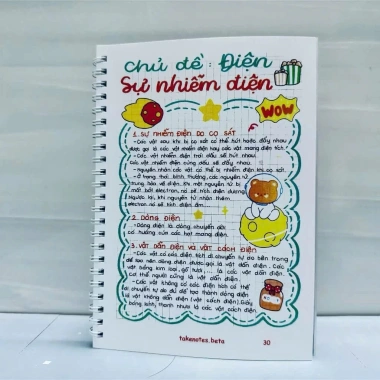 chủ đề : Điện
Sự nhiễm điện
WOW
1. SỰ NHIỄM ĐIỆN DO CỌ XÁT
- Các vật sau khi bị cọ xát có thể hút hoặc đẩy nhau
được gọi là các vật nhiễm điện hay các vật mang điện tích.
- Các vật nhiễm điện trái dấu sẽ hút nhau.
Các vật nhiễm điện cùng dấu sẽ đẩy nhau.
- Nguyên nhân các vật có thể bị nhiễm điện khi cọ xát.
- Ở trạng thái bình thường, các nguyên tử
trung hòa về điện. Khi một nguyên tử bị
mất bớt electron, nó sẽ tích điện dương.
Ngược lại, khi nguyên tử nhận thêm
electron nó sẽ tích điện âm.
2. DÒNG ĐIỆN
- Dòng điện là dòng chuyển dời
có hướng của các hạt mang điện.
3. VẬT DẪN ĐIỆN VÀ VẬT CÁCH ĐIỆN
- Các vật có các điện tích di chuyển tự do bên trong
để tạo nên dòng điện được gọi là vật dẫn điện. Các
vật bằng kim loại, gỗ tươi, ... là các vật dẫn điện.
Cơ thể người cũng là vật dẫn điện.
- Các vật không có các điện tích có thể
di chuyển tự do để tạo thành dòng điện
là vật không dẫn điện (vật cách điện). Giấy
bóng kính, thanh nhựa là các vật cách điện.
takenotes.beta
30